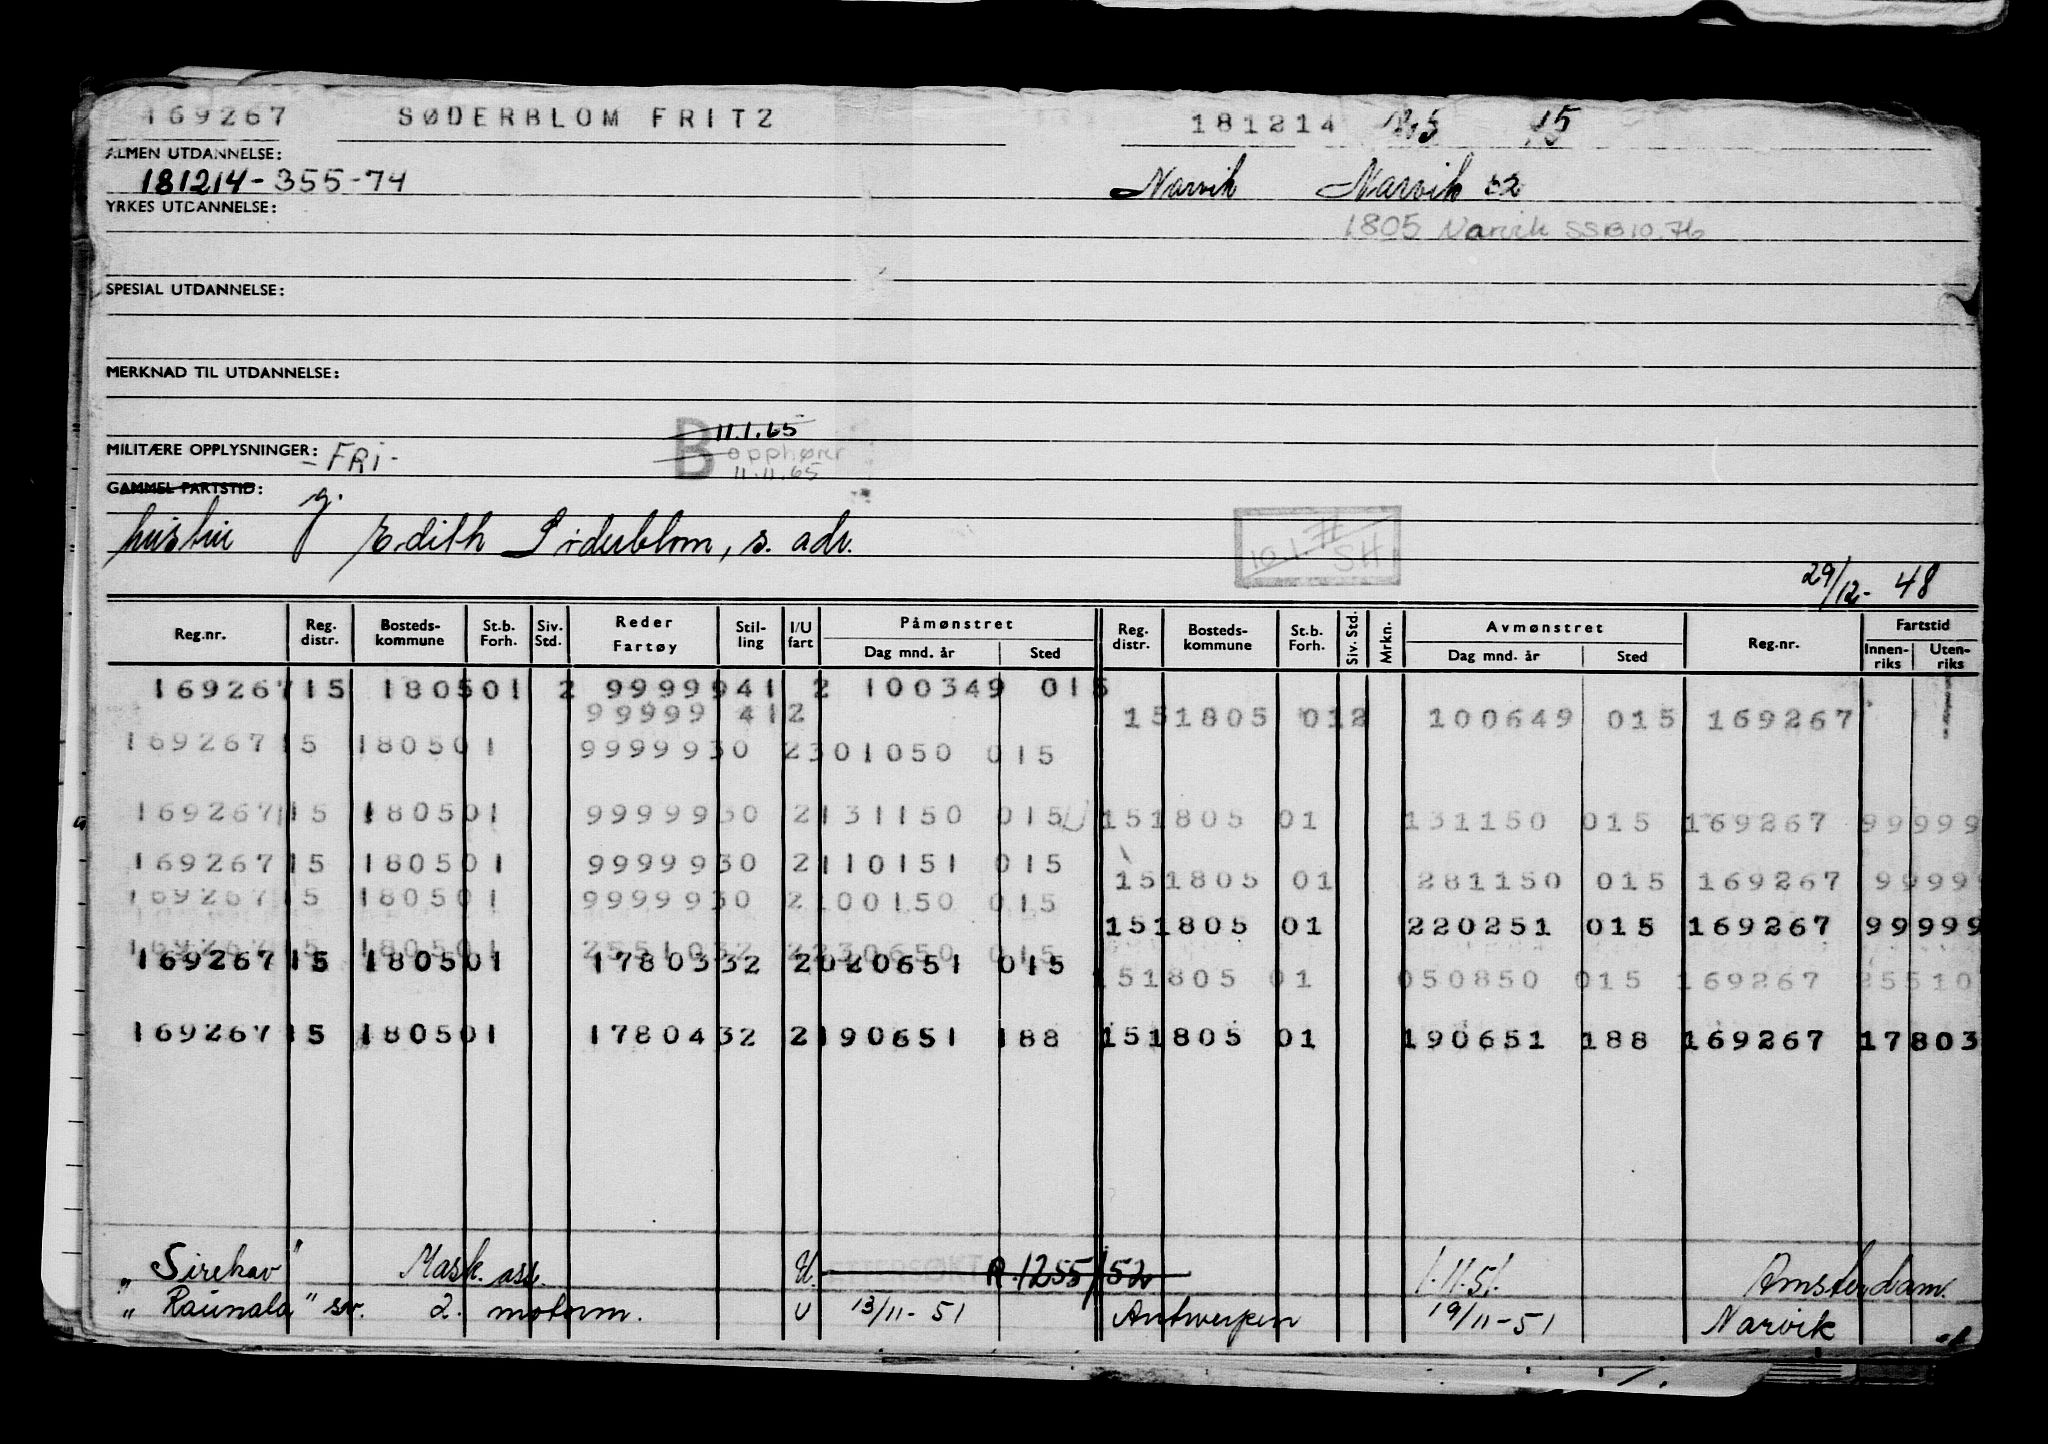 169267 SØDERBLOM FRITZ 181214 15
ALMEN UTDANNELSE:
181214-355-74 Narvik Narvik 52
YRKES UTDANNELSE:
1805 Narvik SSB 10.76
SPESIAL UTDANNELSE:
MERKNAD TIL UTDANNELSE:
11.1.65
MILITÆRE OPPLYSNINGER: -FRI- B opphører
11.11.65
GAMMEL FARTSTID: g.
hustru Edith Søderblom, s. adr. 10.1.71 SH
29/12- 48
Reg.nr. Reg. distr. Bosteds-kommune St.b. Forh. Siv. Std. Reder Fartøy Stil-ling I/U fart Påmønstret Dag mnd. år Sted Reg. distr. Bosteds-kommune St.b. Forh. Siv. Std. Mrkn. Avmønstret Dag mnd. år Sted Reg.nr. Fartstid Innen-riks Uten-riks
169267 15 1805 01 2 99999 41 2 100349 015
99999 41 2 15 1805 01 2 100649 015 169267
169267 15 1805 01 99999 30 2 301050 015
169267 15 1805 01 99999 30 2 131150 015 U 15 1805 01 131150 015 169267 99999
169267 15 1805 01 99999 30 2 110151 015 15 1805 01 281150 015 169267 99999
169267 15 1805 01 99999 30 2 100150 015
15 1805 01 220251 015 169267 99999
169267 15 1805 01 25510 32 2 230650 015
169267 15 1805 01 17803 32 2 020651 015 151805 01 050850 015 169267 25510
169267 15 1805 01 17804 32 2 190651 188 151805 01 190651 188 169267 17803
"Sirehav" Mask. ass. U. R.1255/52 1.11.51. Amsterdam.
"Raunala" sv. 2. motorm. U 13/11-51 Antwerpen 19/11-51 Narvik